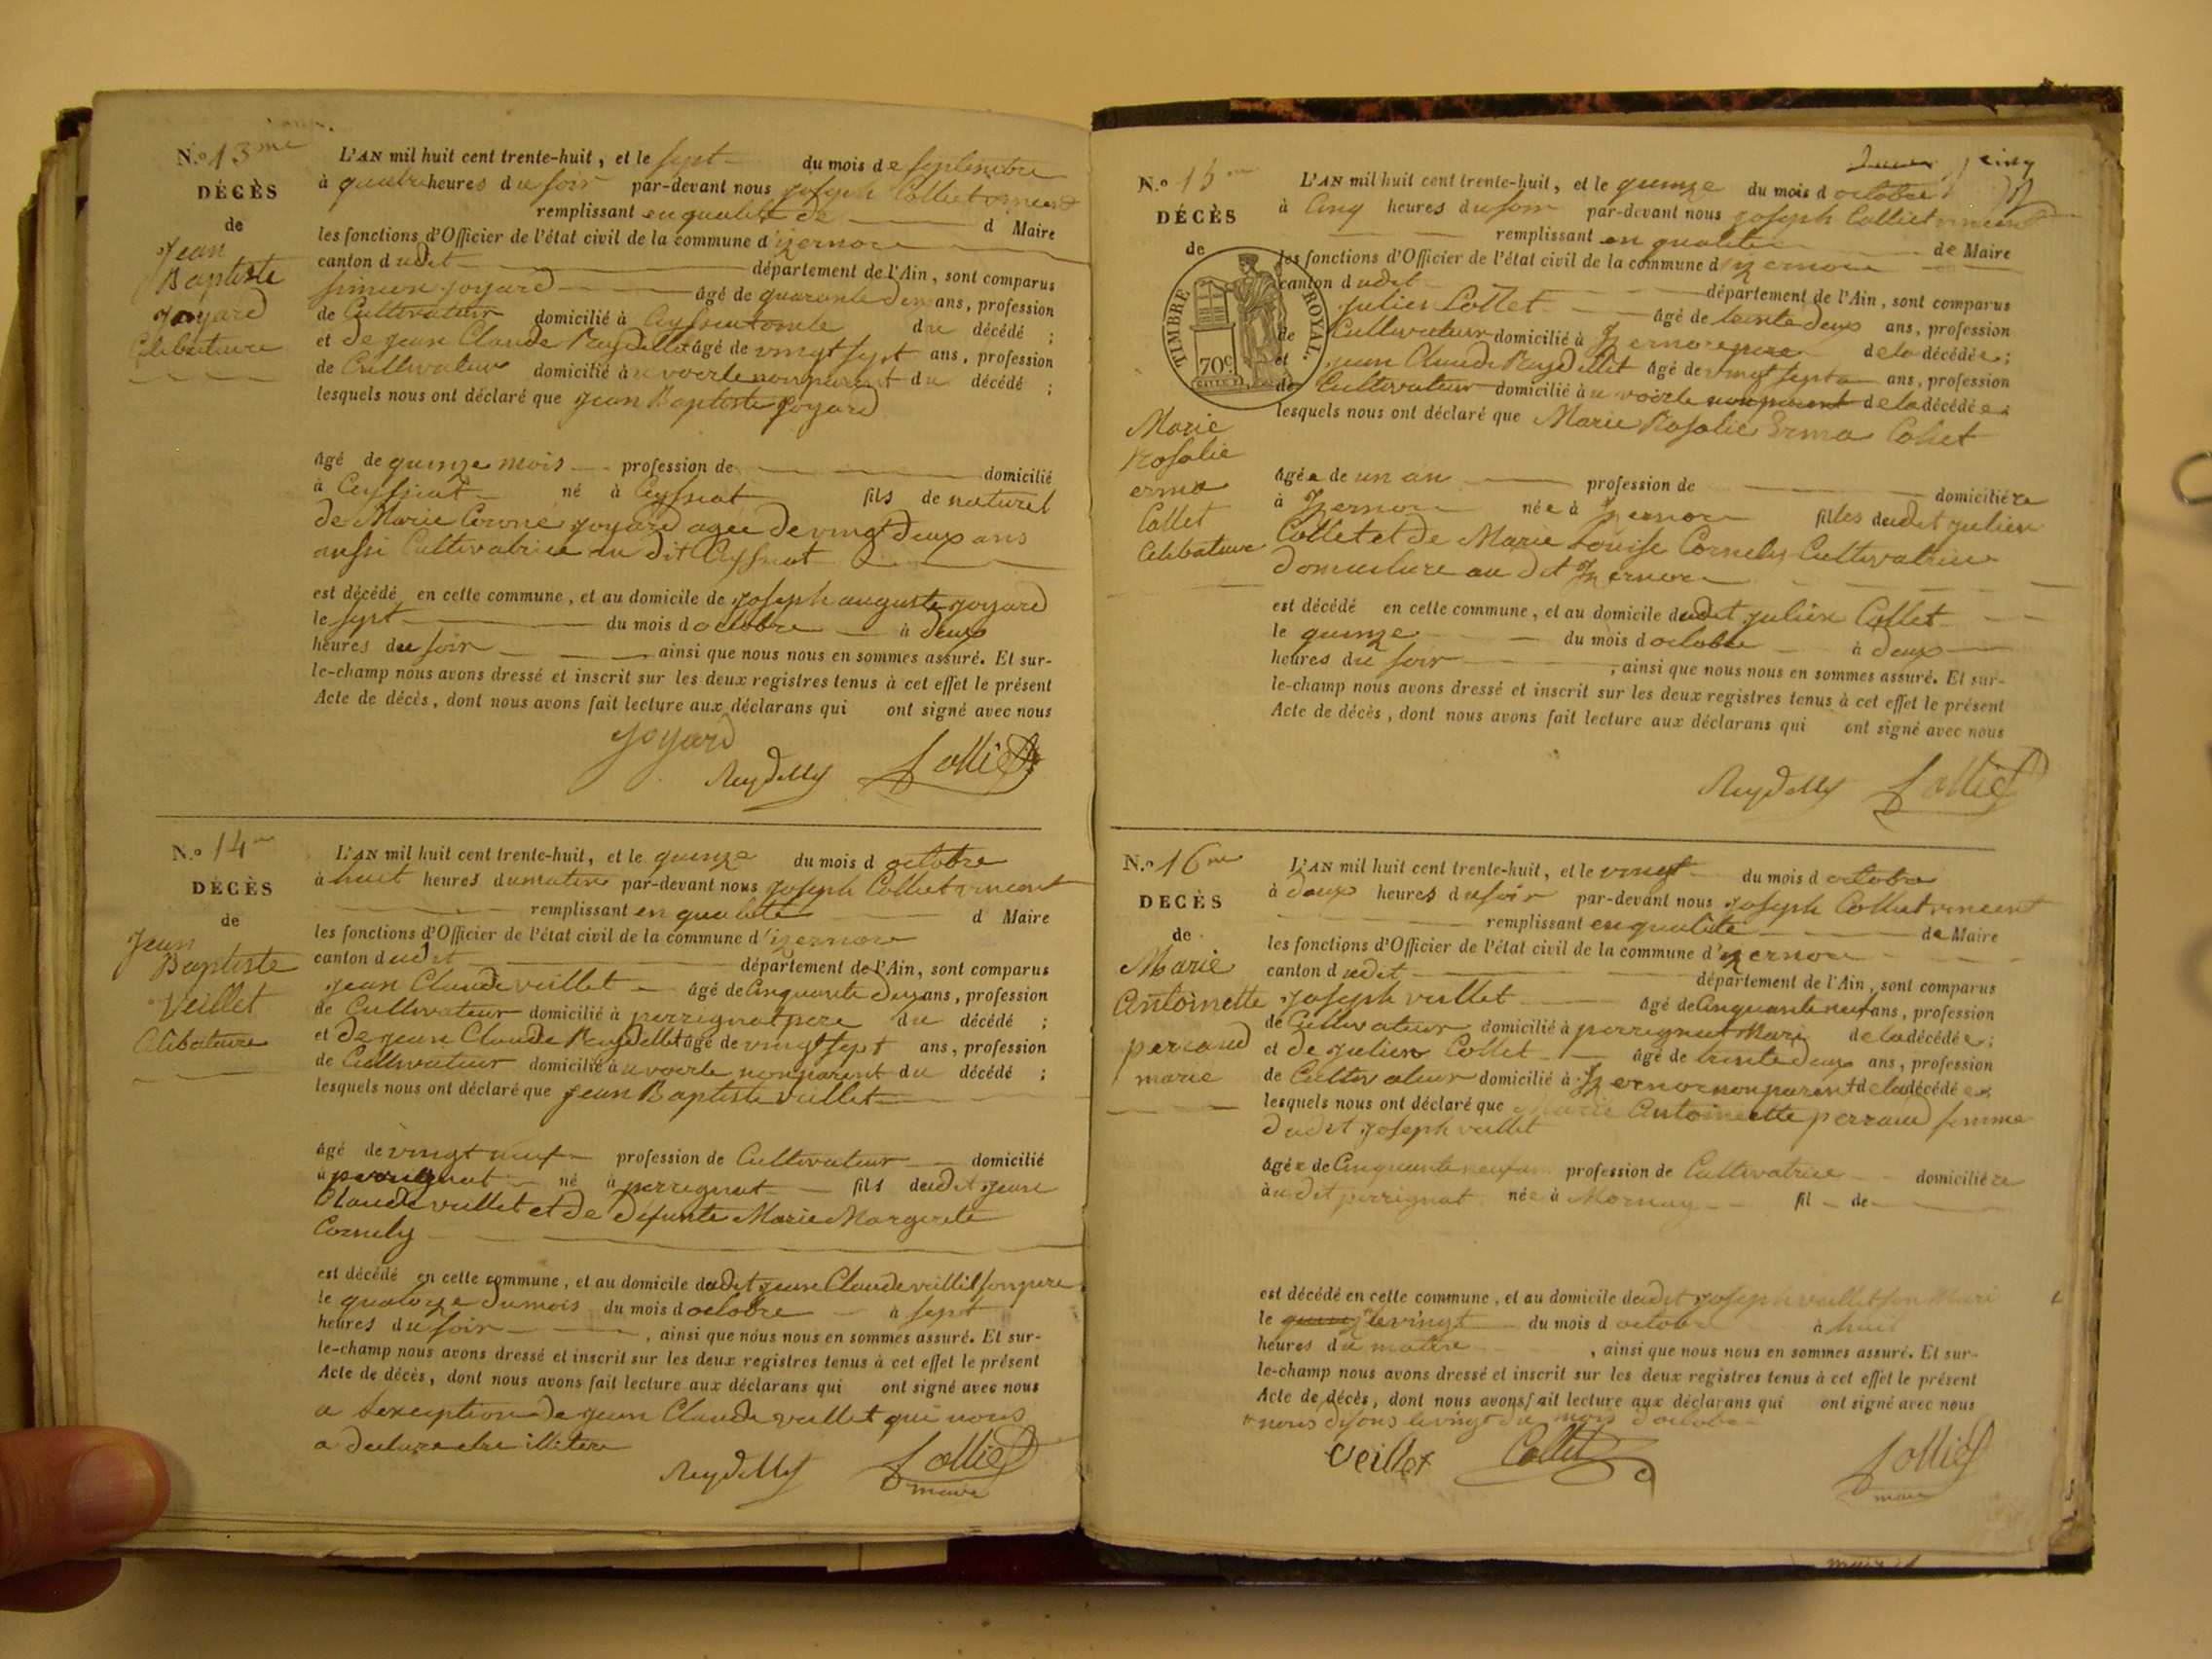 N.º 13me
DÉCÈS
de
Jean
Baptiste
Joyard
Celibataire
L'AN mil huit cent trente-huit, et le sept du mois de septembre
à quatre heures du soir par-devant nous Joseph Colliet vincent
remplissant en qualité de d Maire
les fonctions d'Officier de l'état civil de la commune d'izernore
canton dudit département de l'Ain, sont comparus
simeon joyard âgé de quarante deux ans, profession
de Cultivateur domicilié à Ceyssiat oncle du décédé ;
et de jean Claude Reydellet âgé de vingt sept ans, profession
de Cultivateur domicilié au voerle non parent du décédé ;
lesquels nous ont déclaré que Jean Baptiste joyard
âgé de quinze mois profession de domicilié
à Ceyssiat né à Ceyssiat fils de naturel
de Marie joyard agee de vingt deux ans
aussi Cultivatrice au dit Ceyssiat
est décédé en cette commune, et au domicile de joseph auguste joyard
le sept du mois d octobre à deux
heures du soir ainsi que nous nous en sommes assuré. Et sur-
le-champ nous avons dressé et inscrit sur les deux registres tenus à cet effet le présent
Acte de décès, dont nous avons fait lecture aux déclarans qui ont signé avec nous
joyard
Reydellet Colliet
N.º 14me
DÉCÈS
de
Jean
Baptiste
Veillet
Celibataire
L'AN mil huit cent trente-huit, et le quinze du mois d octobre
à huit heures du matin par-devant nous joseph Colliet vincent
remplissant en qualité d Maire
les fonctions d'Officier de l'état civil de la commune d'izernore
canton dudit département de l'Ain, sont comparus
jean Claude veillet âgé de Cinquante deux ans, profession
de Cultivateur domicilié à perrignat pere du décédé ;
et de jean Claude Reydellet âgé de vingt sept ans, profession
de Cultivateur domicilié au voerle non parent du décédé ;
lesquels nous ont déclaré que jean Baptiste veillet
âgé de vingt neuf profession de Cultivateur domicilié
à perrignat né à perrignat fils dudit jean
Claude veillet et de defunte Marie Margerite
Cornely
est décédé en cette commune, et au domicile dudit jean Claude veillet son pere
le quatorze du mois du mois d octobre à sept
heures du soir , ainsi que nous nous en sommes assuré. Et sur-
le-champ nous avons dressé et inscrit sur les deux registres tenus à cet effet le présent
Acte de décès, dont nous avons fait lecture aux déclarans qui ont signé avec nous
a l'exception de jean Claude veillet qui nous
a declare etre illitere
Reydellet Colliet
maire
N.º 15me
DÉCÈS
de
TIMBRE ROYAL.
70c
Marie
Rosalie
erma
Collet
Celibataire
L'AN mil huit cent trente-huit, et le quinze du mois d octobre
à Cinq heures du soir par-devant nous joseph Colliet vincent
remplissant en qualité de Maire
les fonctions d'Officier de l'état civil de la commune d'izernore
canton dudit département de l'Ain, sont comparus
julien Collet âgé de trente deux ans, profession
de Cultivateur domicilié à Izernore pere de la décédée ;
et jean Claude Reydellet âgé de vingt sept ans, profession
de Cultivateur domicilié au voerle non parent de la décédée ;
lesquels nous ont déclaré que Marie Rosalie Erma Collet
âgée de un an profession de domiciliée
à Izernore née à Izernore filles dudit julien
Collet et de Marie Louise Cornely Cultivatrice
au dit Izernore
est décédé en cette commune, et au domicile dudit julien Collet
le quinze du mois d octobre à deux
heures du soir , ainsi que nous nous en sommes assuré. Et sur-
le-champ nous avons dressé et inscrit sur les deux registres tenus à cet effet le présent
Acte de décès, dont nous avons fait lecture aux déclarans qui ont signé avec nous
Reydellet Colliet
N.º 16me
DÉCÈS
de
Marie
Antoinette
perraud
marie
L'AN mil huit cent trente-huit, et le vingt du mois d octobre
à deux heures du soir par-devant nous joseph Colliet vincent
remplissant en qualité de Maire
les fonctions d'Officier de l'état civil de la commune d'izernore
canton dudit département de l'Ain, sont comparus
joseph veillet âgé de Cinquante neuf ans, profession
de Cultivateur domicilié à perrignat Mari de la décédée ;
et de julien Collet âgé de trente deux ans, profession
de Cultivateur domicilié à Izernore non parent de la décédée
lesquels nous ont déclaré que Marie Antoinette perraud femme
dudit joseph veillet
âgée de Cinquante neuf ans profession de Cultivatrice domiciliée
au dit perrignat née à Mornay fil de
est décédé en cette commune, et au domicile dudit joseph veillet son Mari
le quinze le vingt du mois d octobre à huit
heures du matin , ainsi que nous nous en sommes assuré. Et sur-
le-champ nous avons dressé et inscrit sur les deux registres tenus à cet effet le présent
Acte de décès, dont nous avons fait lecture aux déclarans qui ont signé avec nous
nous disons le vingt du mois d'octobre
Veillet Collet Colliet
maire